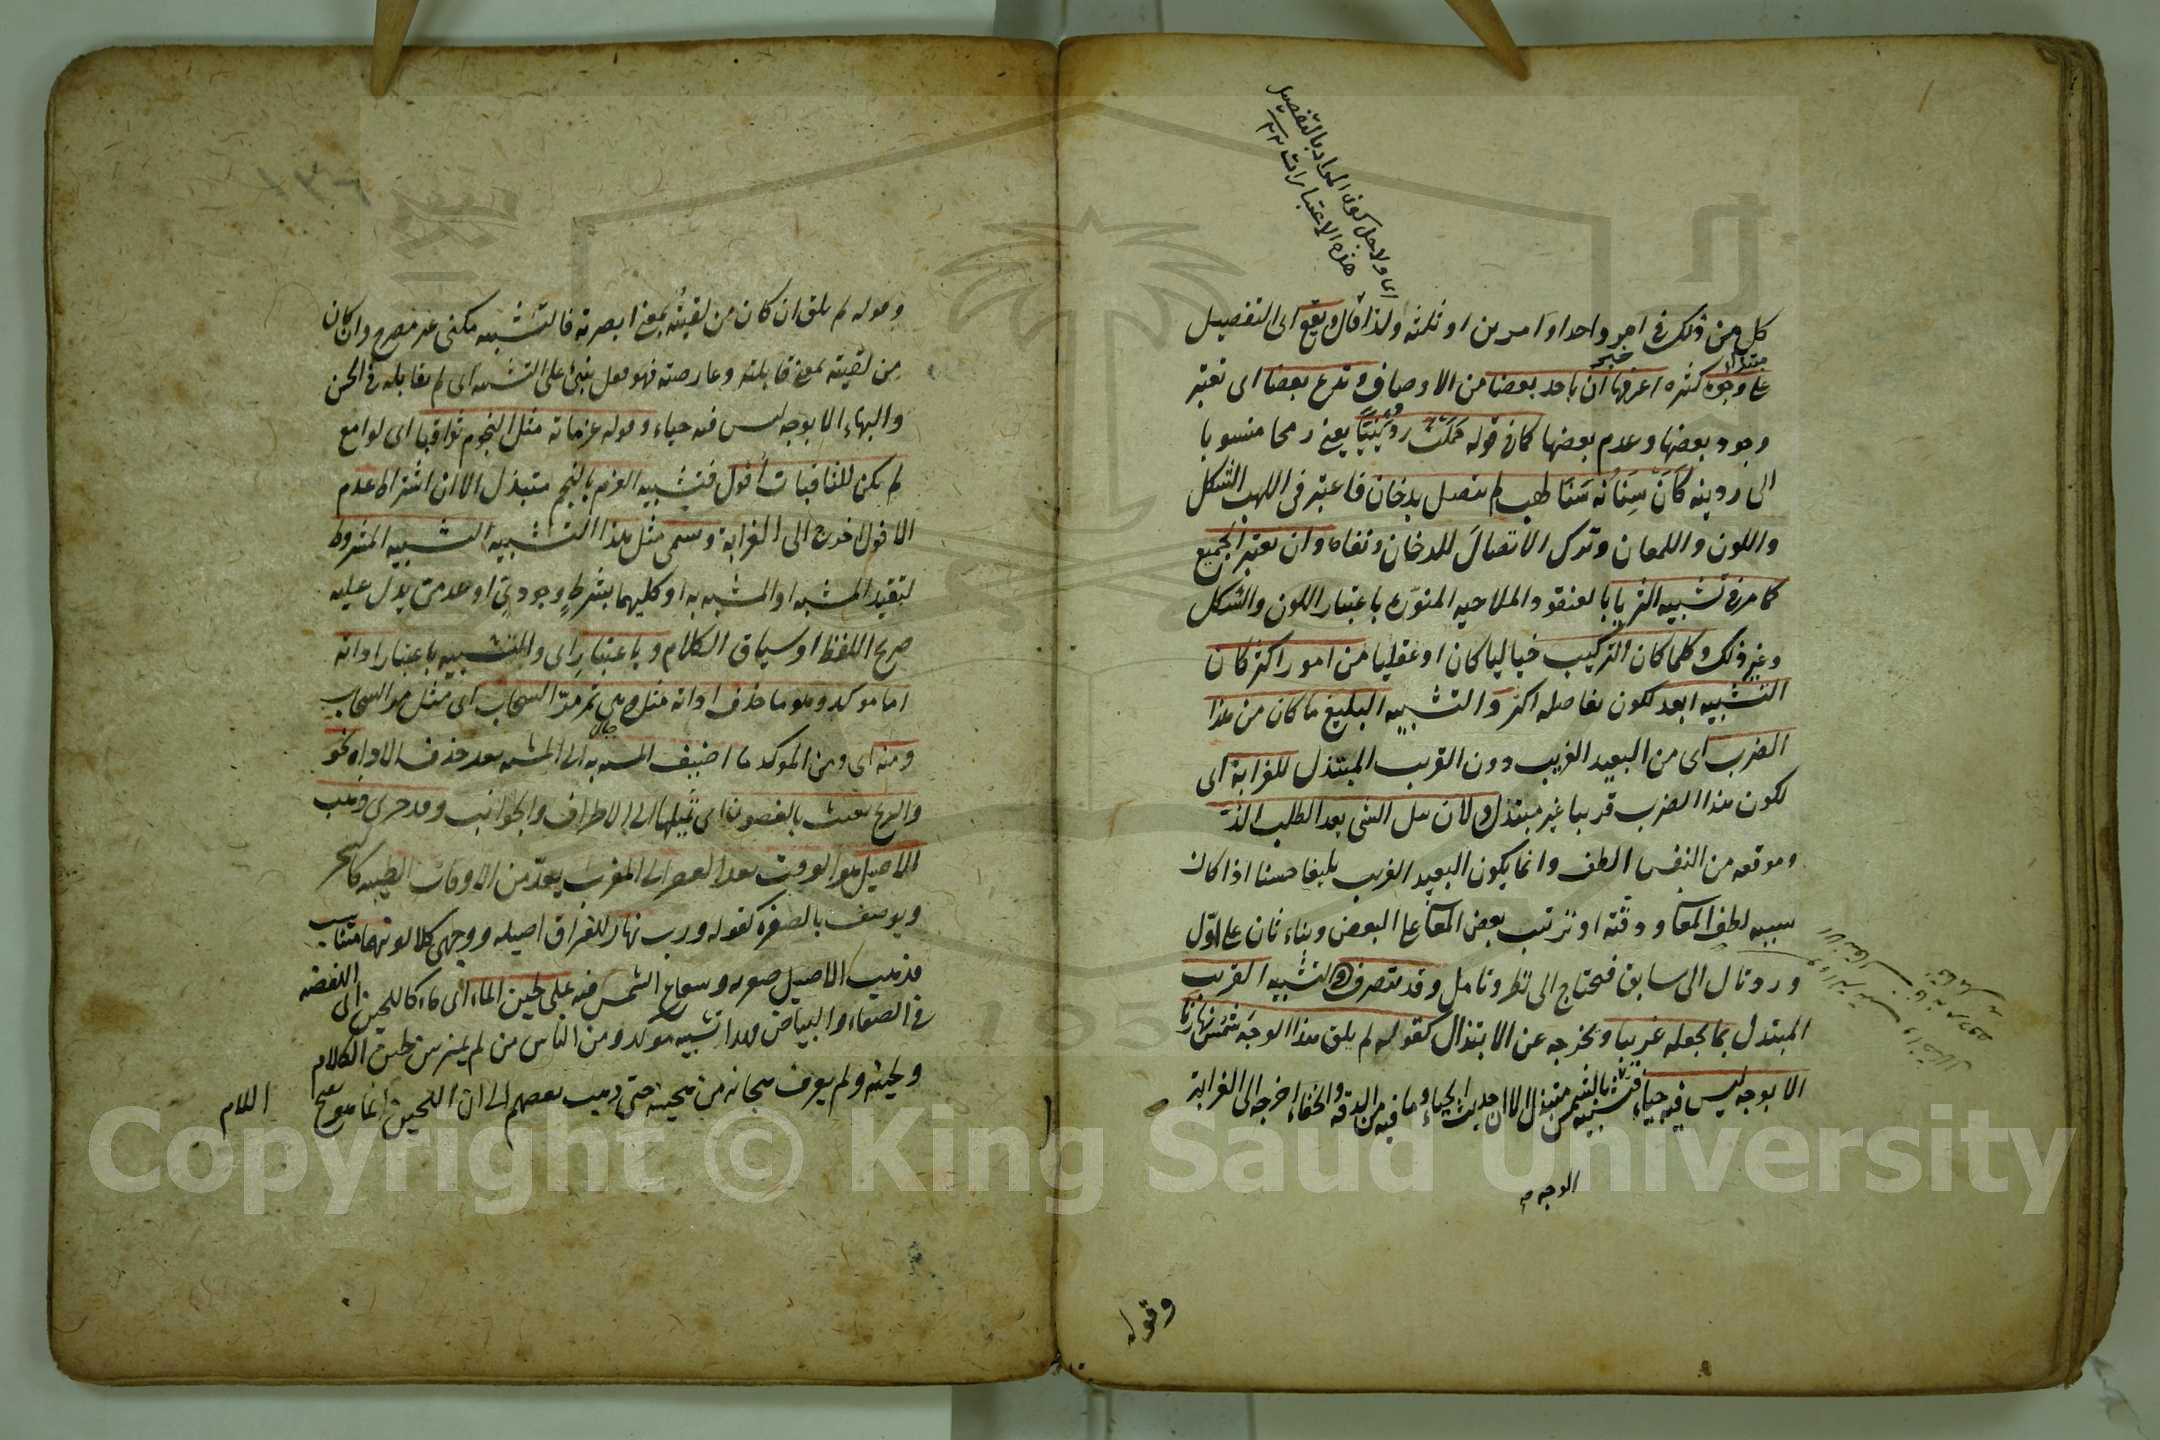 اى ولاجل كون المراد بالتفصيل
هذه الاعتبارات
كل من ذلك فى امر واحد او امرين او ثلثة ولذا قال ويقع اى التفصيل
على وجوه كثيرة اعرفها ان ياخذ بعضا من الاوصاف وتدع بعضا اى تعتبر
مبتداء
خبر
وجود بعضها وعدم بعضها كما فى قوله حَمَلْتُ رُدَيْنِيًّا يعنى رمحا منسوبا
الى ردينه كَانَّ سِنَانُه سَنَا لهب لم يتصل بدخان فاعتبر فى اللهب الشكل
واللون واللمعان وترك الاتصال للدخان ونفاه وان يعتبر الجميع
كما مر فى تشبيه الثريا بالعنقود الملاحيه المنوّرة باعتبار اللون والشكل
وغير ذلك وكلما كان التركيب خياليا كان او عقليا من امور اكثر كان
التشبيه ابعد لكون تفاصله اكثر والتشبيه البليغ ما كان من هذا
الضرب اى من البعيد الغريب دون القريب المبتذل للغرابة اى
لكون هذا الضرب قريبا غير مبتذل ولان نيل الشى بعد الطلب الذ
وموقعه من النفس الطف وانما يكون البعيد الغريب بليغا حسنا اذا كان
سببه لطف المعانى ودقته او ترتب بعض المعانى على البعض وبناء ثان على اوّل
ورد تال الى سابق فيحتاج الى نظر وتامل وقد يتصرف فى التشبيه القريب
المبتذل بما يجعله غريبا ويخرجه عن الابتذال كقوله لم يلق هذا الوجه شمس نهارنا
الا بوجه ليس فيه حياء فتشبيه بالشمس مبتذل الا ان حديث الحياء وما فيه من الدقة والخفاء اخرجه الى الغرابة
الوجه
وقوله
وقوله لم يلق ان كان من لقيتُه بمعنى ابصرته فالتشبيه مكنى غير مصرح وان كان
من لقيته بمعنى قابلته وعارضته فهو فعل ينبئ على التشبيه اى لم يقابله فى الحسن
والبهاء الا بوجه ليس فيه حياء وقوله عزماته مثل النجوم ثواقبا اى لوامع
لم يكن للثاقبات اُفول فتشبيه العزم بالنجم مبتذل الا ان اشتراط عدم
الافول اخرجه الى الغرابة ويسمى مثل هذا التشبيه التشبيه المشروط
لتقيد المشبه او المشبه به او كليهما بشرطٍ وجودىّ او عدمى يدل عليه
صريح اللفظ او سياق الكلام وباعتبار اى والتشبيه باعتبار اداته
اما موكد وهو ما حذف اداته مثل وهى تمر مرّ السحاب اى مثل مر السحاب
ومنه اى ومن الموكد ما اضيف المشبه به الى المشبه بعد حذف الاداة نحو
والريح تعبث بالغصون اى تميلها الى الاطراف والجوانب وقد جرى ذهب
الاصيل هو الوقت بعد العصر الى المغرب يعدّ من الاوقات الطيبه كالسحر
ويوصف بالصفرة كقوله ورب نهار للفراق اصيله ووجهى كلا لونيهما متناسب
فذهب الاصيل صفرته وشعاع الشمس فيه على لجين الماء اى ماء كاللجين اى الفضة
فى الصفاء والبياض فهذا تشبيه موكد ومن الناس من لم يميز بين لجين الكلام
ولجينه ولم يعرف هجانه من هجينه حتى ذهب بعضهم الى ان اللجين انما هو بفتح
اللام